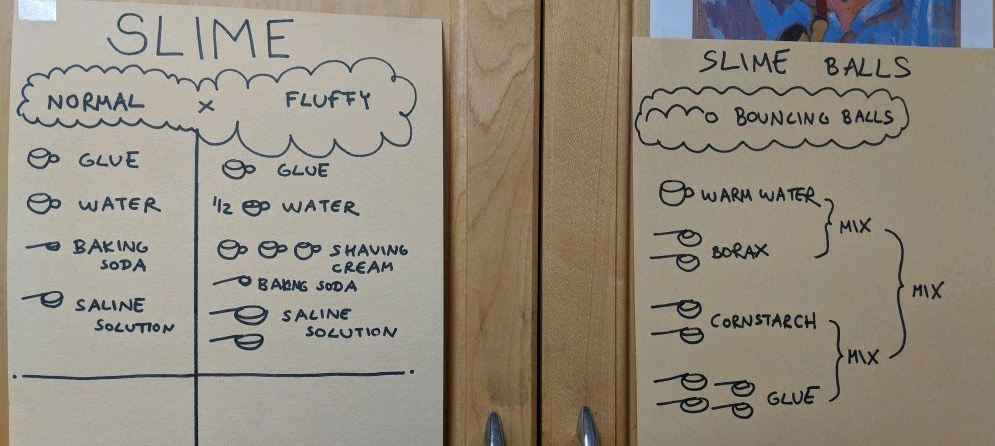 SLIME
NORMAL x FLUFFY
GLUE
WATER
BAKING
SODA
SALINE
SOLUTION
GLUE
1/2 WATER
SHAVING
CREAM
BAKING SODA
SALINE
SOLUTION
SLIME BALLS
BOUNCING BALLS
WARM WATER
BORAX
MIX
CORNSTARCH
GLUE
MIX
MIX